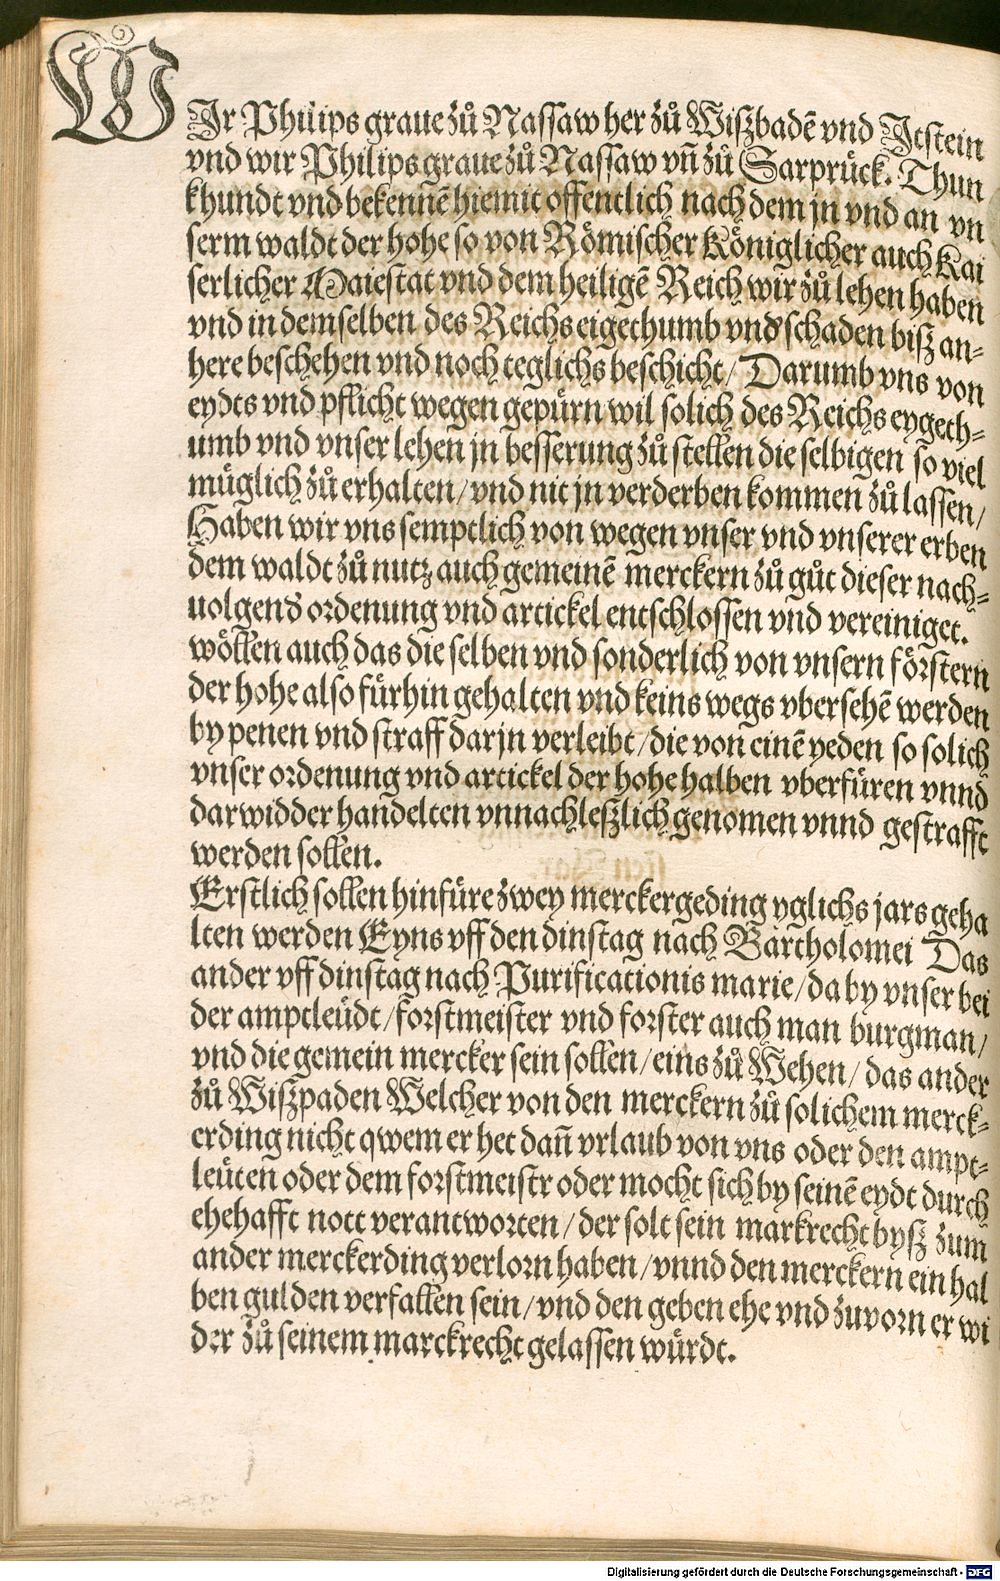 WIr Philips graue zů Nassaw her zů Wißbadē vnd Jtstein
vnd wir Philips graue zů Nassaw vn̄ zů Sarprück. Thun
khundt vnd bekennē hiemit offentlich nach dem jn vnd an vn
serm waldt der hohe so von Römischer Königlicher auch Kai
serlicher Maiestat vnd dem heiligē Reich wir zů lehen haben
vnd in demselben des Reichs eigethumb vnd schaden biß an-
here beschehen vnd noch teglichs beschicht/ Darumb vns von
eydts vnd pflicht wegen gepürn wil solich des Reichs eygeth-
umb vnd vnser lehen jn besserung zů stellen die selbigen so viel
müglich zů erhalten/ vnd nit jn verderben kommen zů lassen/
Haben wir vns semptlich von wegen vnser vnd vnserer erben
dem waldt zů nutz auch gemeinē merckern zů gůt dieser nach-
uolgend ordenung vnd artickel entschlossen vnd vereiniget.
wöllen auch das die selben vnd sonderlich von vnsern förstern
der hohe also fürhin gehalten vnd keins wegs vbersehē werden
by penen vnd straff darjn verleibt/ die von einē yeden so solich
vnser ordenung vnd artickel der hohe halben vberfüren vnnd
darwidder handelten vnnachleßlich genomen vnnd gestrafft
werden sollen.
Erstlich sollen hinfüre zwey merckergeding yglichs jars geha
lten werden Eyns vff den dinstag nach Bartholomei Das
ander vff dinstag nach Purificationis marie/ da by vnser bei
der amptleüdt/ forstmeister vnd forster auch man burgman/
vnd die gemein mercker sein sollen/ eins zů Wehen/ das ander
zů Wißpaden Welcher von den merckern zů solichem merck-
erding nicht qwem er het dan̄ vrlaub von vns oder den ampt-
leüten oder dem forstmeistr oder mocht sich by seinē eydt durch
ehehafft nott verantworten/ der solt sein markrecht byß zum
ander merckerding verlorn haben/ vnnd den merckern ein hal
ben gulden verfallen sein/ vnd den geben ehe vnd zuvorn er wi
der zů seinem marckrecht gelassen würdt.
Digitalisierung gefördert durch die Deutsche Forschungsgemeinschaft - DFG